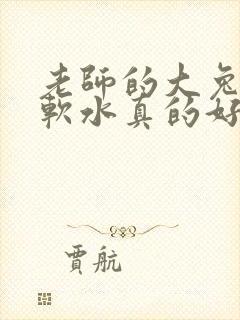 老師的大兔
軟水真的好
賈航